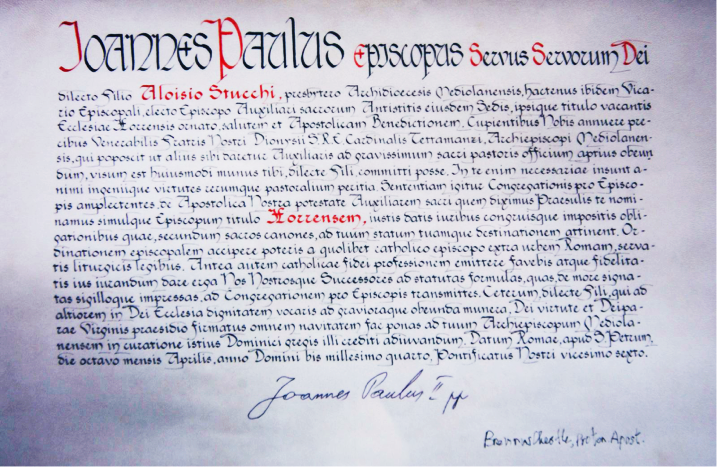 Joannes Paulus Episcopus Servus Servorum Dei
dilecto Filio Aloisio Stucchi, presbytero Archidioecesis Mediolanensis, hactenus ibidem Vica-
rio Episcopali, electo Episcopo Auxiliari sacrorum Antistitis eiusdem Sedis, ipsique titulo vacantis
Ecclesiae Horrensis ornato, salutem et Apostolicam Benedictionem. Cupientibus Nobis annuere pre-
cibus Venerabilis Fratris Nostri Dionysii S.R.E. Cardinalis Tettamanzi, Archiepiscopi Mediolanen-
sis, qui poposcit ut alius sibi daretur Auxiliaris ad gravissimum sacri pastoris officium aptius obeun
dum, visum est huiusmodi munus tibi, dilecte Fili, committi posse. In te enim necessariae insunt a-
nimi ingeniique virtutes rerumque pastoralium peritia. Sententiam igitur Congregationis pro Episco-
pis amplectentes, de Apostolica Nostra potestate Auxiliarem sacri quem diximus Praesulis te nomi-
namus simulque Episcopum titulo Horrensem, iustis datis iuribus congruisque impositis obli-
gationibus quae, secundum sacros canones, ad tuum statum tuamque destinationem attinent. Or-
dinationem episcopalem accipere poteris a quolibet catholico episcopo extra urbem Romam, serva-
tis liturgicis legibus. Antea autem catholicae fidei professionem emittere favebis atque fidelita-
tis ius iurandum dare erga Nos Nostrosque Successores ad statutas formulas, quas, de more signa-
tas sigilloque impressas, ad Congregationem pro Episcopis transmittes. Ceterum, dilecte Fili, qui ad
altiorem in Dei Ecclesia dignitatem vocaris ad gravioraque obeunda munera, Dei virtute et Deipa-
rae Virginis praesidio firmatus omnem navitatem fac ponas ad tuum Archiepiscopum Mediola-
nensem in curatione istius Dominici gregis illi crediti adiuvandum. Datum Romae, apud S. Petrum,
die octavo mensis Aprilis, anno Domini bis millesimo quarto, Pontificatus Nostri vicesimo sexto.
Joannes Paulus II pp
Apost.